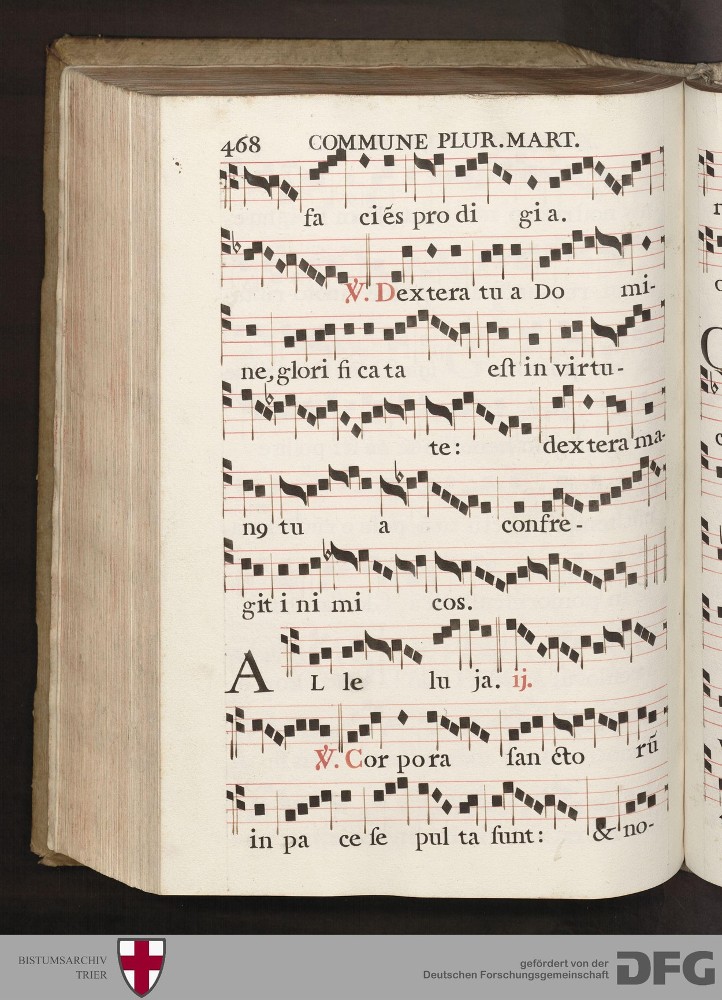 468 COMMUNE PLUR. MART.
fa ciẽs pro di gi a.
℣. Dextera tu a Do mi-
ne, glori fi ca ta eſt in virtu-
te: dextera ma-
nꝯ tu a confre-
git i ni mi cos.
AL le lu ja. ij.
℣. Cor po ra ſan cto rũ
in pa ce ſe pul ta ſunt: & no-
BISTUMSARCHIV
TRIER
gefördert von der
Deutschen Forschungsgemeinschaft
DFG